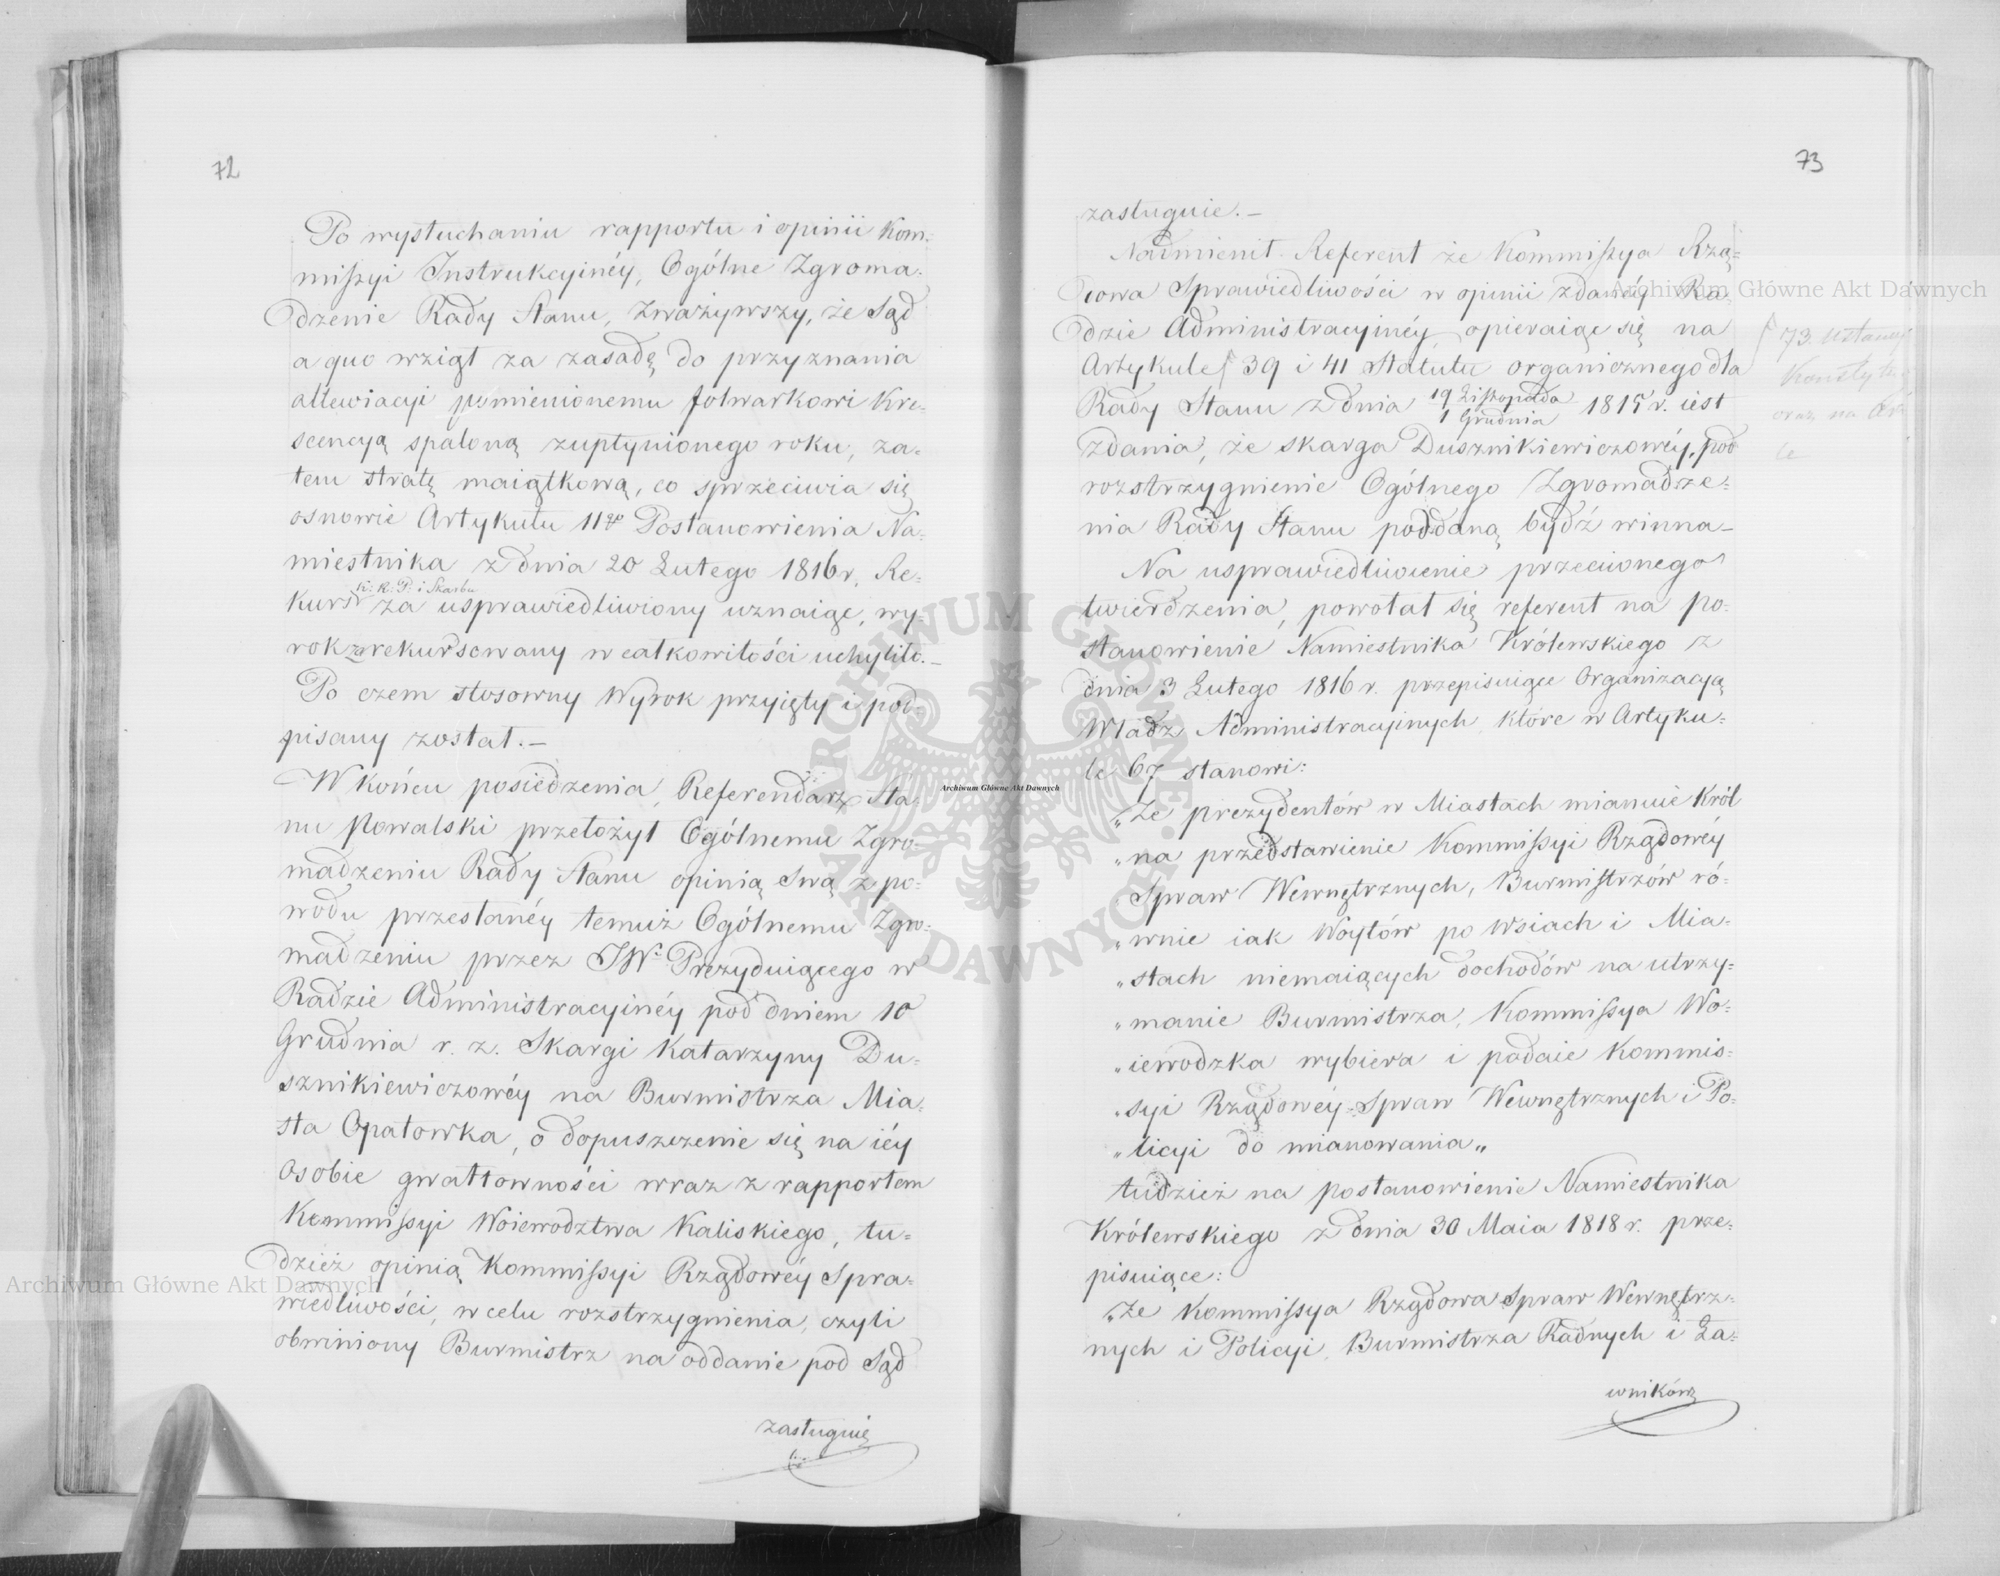 72
Po wysłuchaniu rapportu i opinii Kom-
missyi Instrukcyinéy, Ogólne Zgroma-
dzenie Rady Stanu, zważywszy, że Sąd
a quo wziął za zasadę do przyznania
allewiacyi pomienionemu folwarkowi Kre-
scencyą spaloną zupłynionego roku, za-
tem stratę maiątkową, co sprzeciwia się
osnowie Artykułu 11go Postanowienia Na-
miestnika z dnia 20 Lutego 1816 r. Re-
K: R: P: i Skarbu
kurs za usprawiedliwiony uznaiąc, wy-
rok zarekursowany w całkowitości uchyliło.—
Po czem stosowny Wyrok przyięty i pod-
pisany został.—
W końcu posiedzenia, Referendarz Sta-
nu Kowalski przełożył Ogólnemu Zgro-
madzeniu Rady Stanu opinią swą z po-
wodu przesłanéy temuż Ogólnemu Zgro-
madzeniu przez JW. Prezyduiącego w
Radzie Administracyinéy pod dniem 10
Grudnia r. z. Skargi Katarzyny Du-
sznikiewiczowéy na Burmistrza Mia-
sta Opatowka, o dopuszczenie się na iéy
Osobie gwałtowności wraz z rapportem
Kommissyi Woiewodztwa Kaliskiego, tu-
dzież opinią Kommissyi Rządowéy Spra-
wiedliwości, w celu rozstrzygnienia, czyli
obwiniony Burmistrz na oddanie pod Sąd
zasługuie
73
zasługuie.—
Nadmienił Referent że Kommissya Rzą-
dowa Sprawiedliwości w opinii zdanéy Ra-
dzie Administracyinéy, opieraiąc się na
Artykule 39 i 41 Statutu organicznego dla
73 Ustawy
Konstytuc
oraz na Ar
le
Rady Stanu z dnia 19 Listopada 1815 r. iest
1 Grudnia
zdania, że skarga Dusznikiewiczowéy, pod
rozstrzygnienie Ogólnego Zgromadze-
nia Rady Stanu poddaną bydź winna—
Na usprawiedliwienie przeciwnego
twierdzenia, powołał się referent na po-
stanowienie Namiestnika Królewskiego z
dnia 3 Lutego 1816 r. przepisuiące Organizacyą
Władz Administracyinych, które w Artyku-
le 67 stanowi:
„Że prezydentów w Miastach mianuie Król
„na przedstawienie Kommissyi Rządowéy
„Spraw Wewnętrznych, Burmistrzów ró-
„wnie iak Woytów po Wsiach i Mia-
„stach niemaiących dochodów na utrzy-
„manie Burmistrza, Kommissya Wo-
„iewodzka wybiera i podaie Kommis-
„syi Rządowéy Spraw Wewnętrznych i Po-
„licyi do mianowania„
tudzież na postanowienie Namiestnika
Królewskiego z dnia 30 Maia 1818 r. prze-
pisuiące:
„Że Kommissya Rządowa Spraw Wewnętrz-
nych i Policyi, Burmistrza Radnych i Ła-
wników
Archiwum Główne Akt Dawnych
Archiwum Główne Akt Dawnych
Archiwum Główne Akt Dawnych
ARCHIWUM GŁÓWNE AKT DAWNYCH